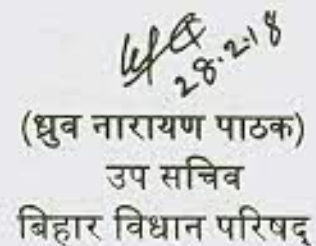 28.2.18
(ध्रुव नारायण पाठक)
उप सचिव
बिहार विधान परिषद्